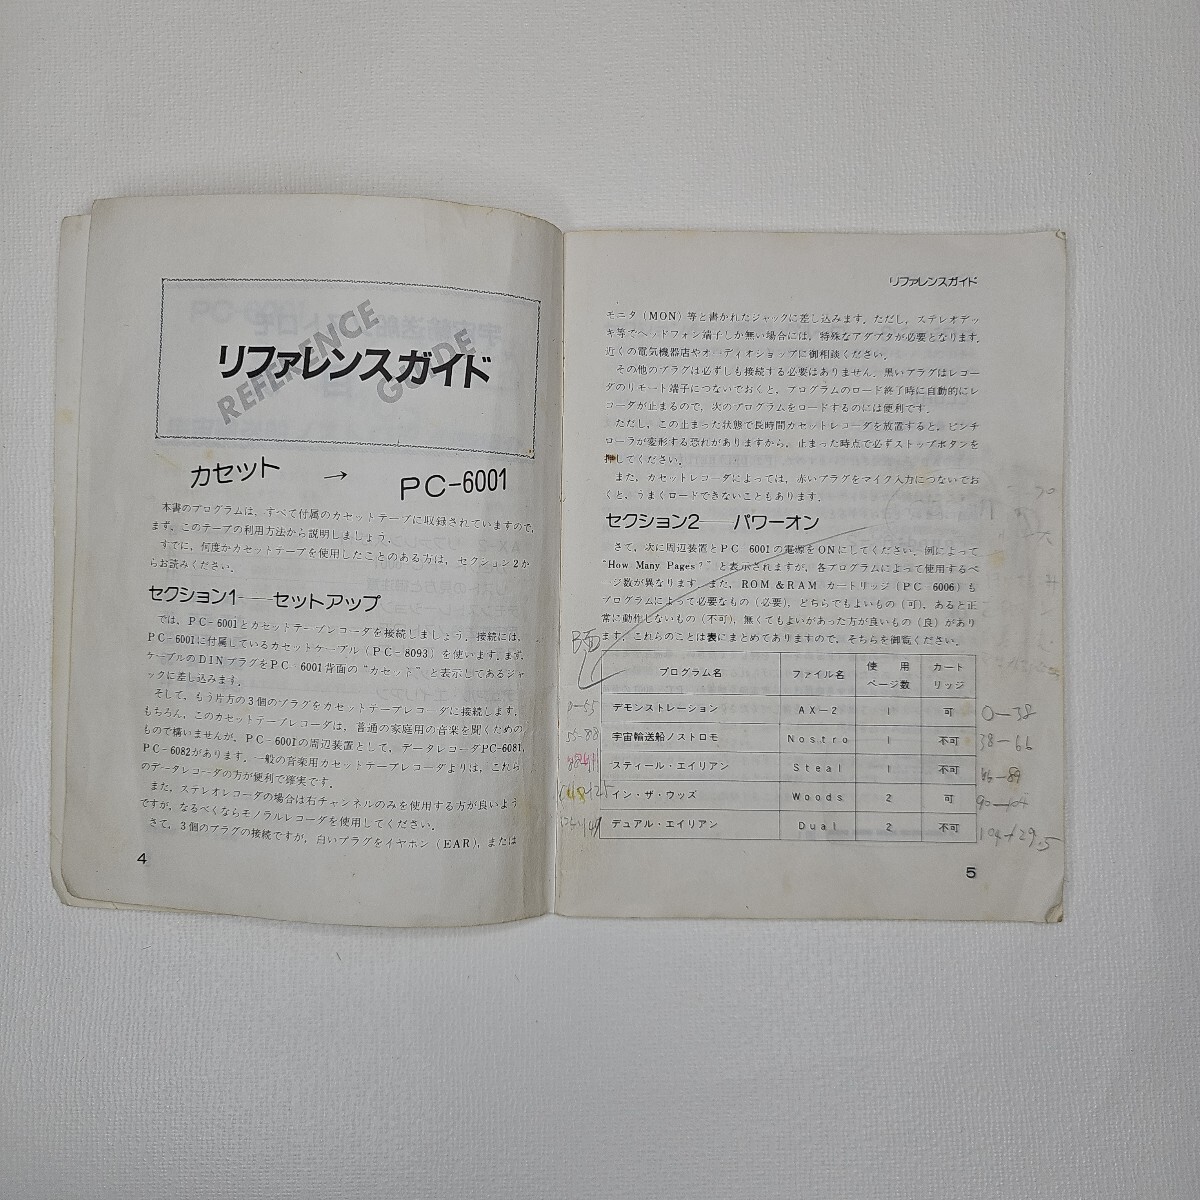 REFERENCE
GUIDE
リファレンスガイド
カセット → PC-6001
本書のプログラムは、すべて付属のカセットテープに収録されていますので、
まず、このテープの利用方法から説明しましょう。
すでに、何度かカセットテープを使用したことのある方は、セクション2か
らお読みください。
セクション1──セットアップ
では、PC-6001とカセットテープレコーダを接続しましょう。接続には、
PC-6001に付属しているカセットケーブル(PC-8093)を使います。まず、
ケーブルのDINプラグをPC-6001背面の"カセット"と表示してあるジャ
ックに差し込みます。
そして、もう片方の3個のプラグをカセットテープレコーダに接続します。
もちろん、このカセットテープレコーダは、普通の家庭用の音楽を聞くための
もので構いませんが、PC-6001の周辺装置として、データレコーダPC-6081,
PC-6082があります。一般の音楽用カセットテープレコーダよりは、これら
のデータレコーダの方が便利で確実です。
また、ステレオレコーダの場合は右チャンネルのみを使用する方が良いよう
ですが、なるべくならモノラルレコーダを使用してください。
さて、3個のプラグの接続ですが、白いプラグをイヤホン(EAR)、または
4
リファレンスガイド
モニタ(MON)等と書かれたジャックに差し込みます。ただし、ステレオデッ
キ等でヘッドフォン端子しか無い場合には、特殊なアダプタが必要となります。
近くの電気機器店やオーディオショップに御相談ください。
その他のプラグは必ずしも接続する必要はありません。黒いプラグはレコー
ダのリモート端子につないでおくと、プログラムのロード終了時に自動的にレ
コーダが止まるので、次のプログラムをロードするのには便利です。
ただし、この止まった状態で長時間カセットレコーダを放置すると、ピンチ
ローラが変形する恐れがありますから、止まった時点で必ずストップボタンを
押してください。
また、カセットレコーダによっては、赤いプラグをマイク入力につないでお
くと、うまくロードできないこともあります。
セクション2──パワーオン
さて、次に周辺装置とPC-6001の電源をONにしてください。例によって
"How Many Pages?"と表示されますが、各プログラムによって使用するペ
ージ数が異なります。また、ROM&RAMカートリッジ(PC-6006)も
プログラムによって必要なもの(必要)、どちらでもよいもの(可)、あると正
常に動作しないもの(不可)、無くてもよいがあった方が良いもの(良)があり
ます。これらのことは表にまとめてありますので、そちらを御覧ください。
B面
プログラム名 ファイル名 使用ページ数 カートリッジ
0-55 デモンストレーション AX-2 1 可 0-38
55-88 宇宙輸送船ノストロモ Nostro 1 不可 38-66
スティール・エイリアン Steal 1 不可
イン・ザ・ウッズ Woods 2 可 90-104
デュアル・エイリアン Dual 2 不可 104-129.5
5